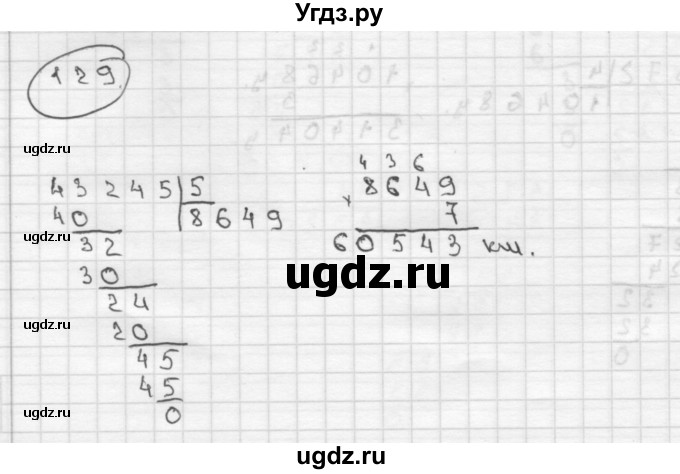 Угдз.ру
129.
43245 | 5
40 8649
32
30
24
20
45
45
0
4 3 6
× 8649
7
60543 км.
ugdz.ru
ugdz.ru
ugdz.ru
ugdz.ru
ugdz.ru
ugdz.ru
ugdz.ru